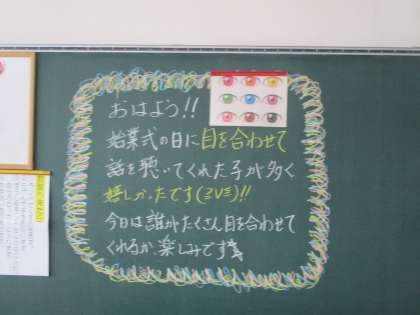 おはよう!!
始業式の日に目を合わせて
話を聴いてくれた子が多く
嬉しかったです(≧∨≦)!!
今日は誰がたくさん目を合わせて
くれるか、楽しみです